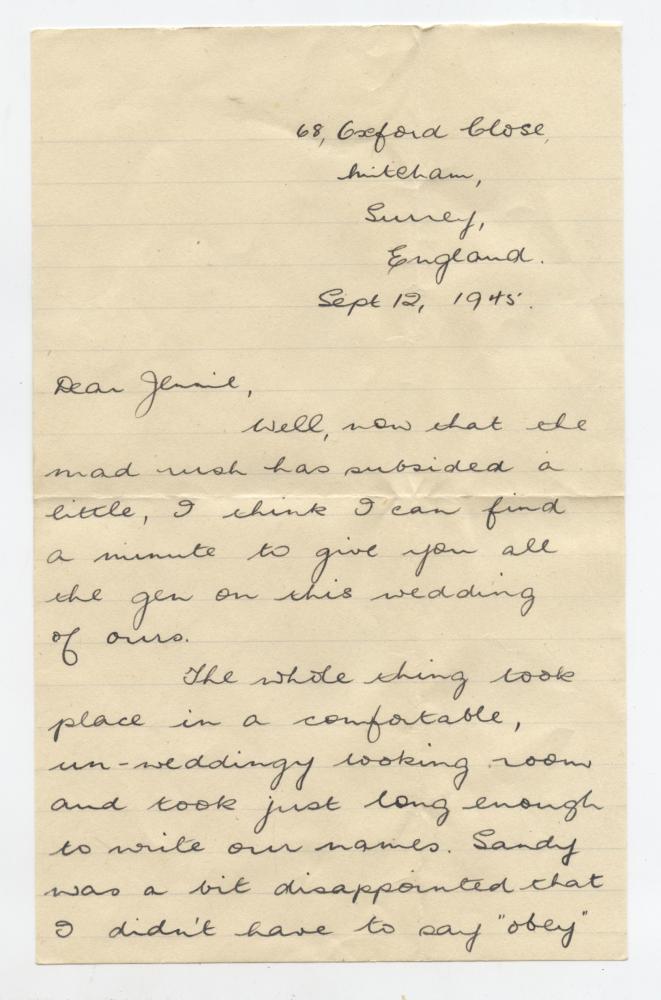 68, Oxford Close,
Mitcham,
Surrey,
England.
Sept 12, 1945.
Dear Jennie,
Well, now that the
mad rush has subsided a
little, I think I can find
a minute to give you all
the gen on this wedding
of ours.
The whole thing took
place in a comfortable,
un-weddingy looking room
and took just long enough
to write our names. Sandy
was a bit disappointed that
I didn't have to say "obey"